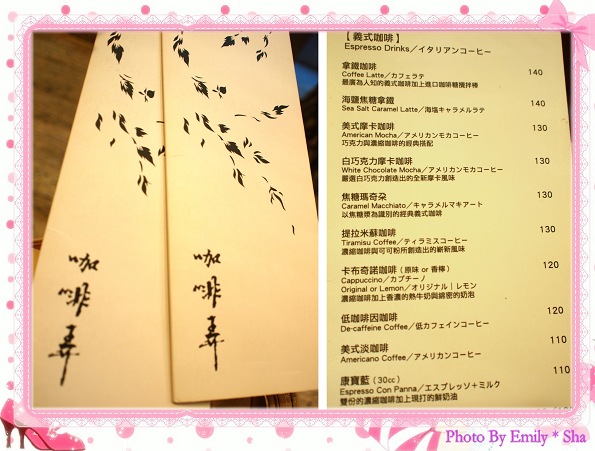 咖啡弄
咖啡弄
【義式咖啡】
Espresso Drinks／イタリアンコーヒー
拿鐵咖啡
Coffee Latte／カフェラテ
最廣為人知的義式咖啡加上進口咖啡糖攪拌棒
140
海鹽焦糖拿鐵
Sea Salt Caramel Latte／海塩キャラメルラテ
140
美式摩卡咖啡
American Mocha／アメリカンモカコーヒー
巧克力與濃縮咖啡的經典搭配
130
白巧克力摩卡咖啡
White Chocolate Mocha／アメリカンモカコーヒー
嚴選白巧克力創造出的全新摩卡風味
130
焦糖瑪奇朵
Caramel Macchiato／キャラメルマキアート
以焦糖漿為識別的經典義式咖啡
130
提拉米蘇咖啡
Tiramisu Coffee／ティラミスコーヒー
濃縮咖啡與可可粉所創造出的嶄新風味
130
卡布奇諾咖啡（原味 or 香檸）
Cappuccino／カプチーノ
Original or Lemon／オリジナル｜レモン
濃縮咖啡加上香濃的熱牛奶與綿密的奶泡
120
低咖啡因咖啡
De-caffeine Coffee／低カフェインコーヒー
120
美式淡咖啡
Americano Coffee／アメリカンコーヒー
110
康寶藍（30cc）
Espresso Con Panna／エスプレッソ＋ミルク
雙份的濃縮咖啡加上現打的鮮奶油
110
Photo By Emily * Sha